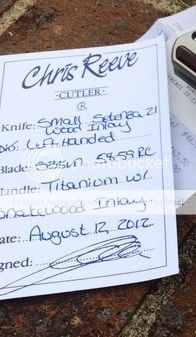 Chris Reeve
· CUTLER ·
®
Knife: Small Sebenza 21
Wood Inlay
No: Left Handed
Blade: S35VN 58.59 RC
Handle: Titanium w/
Snakewood Inlay
Date: August 12, 2012
Signed: